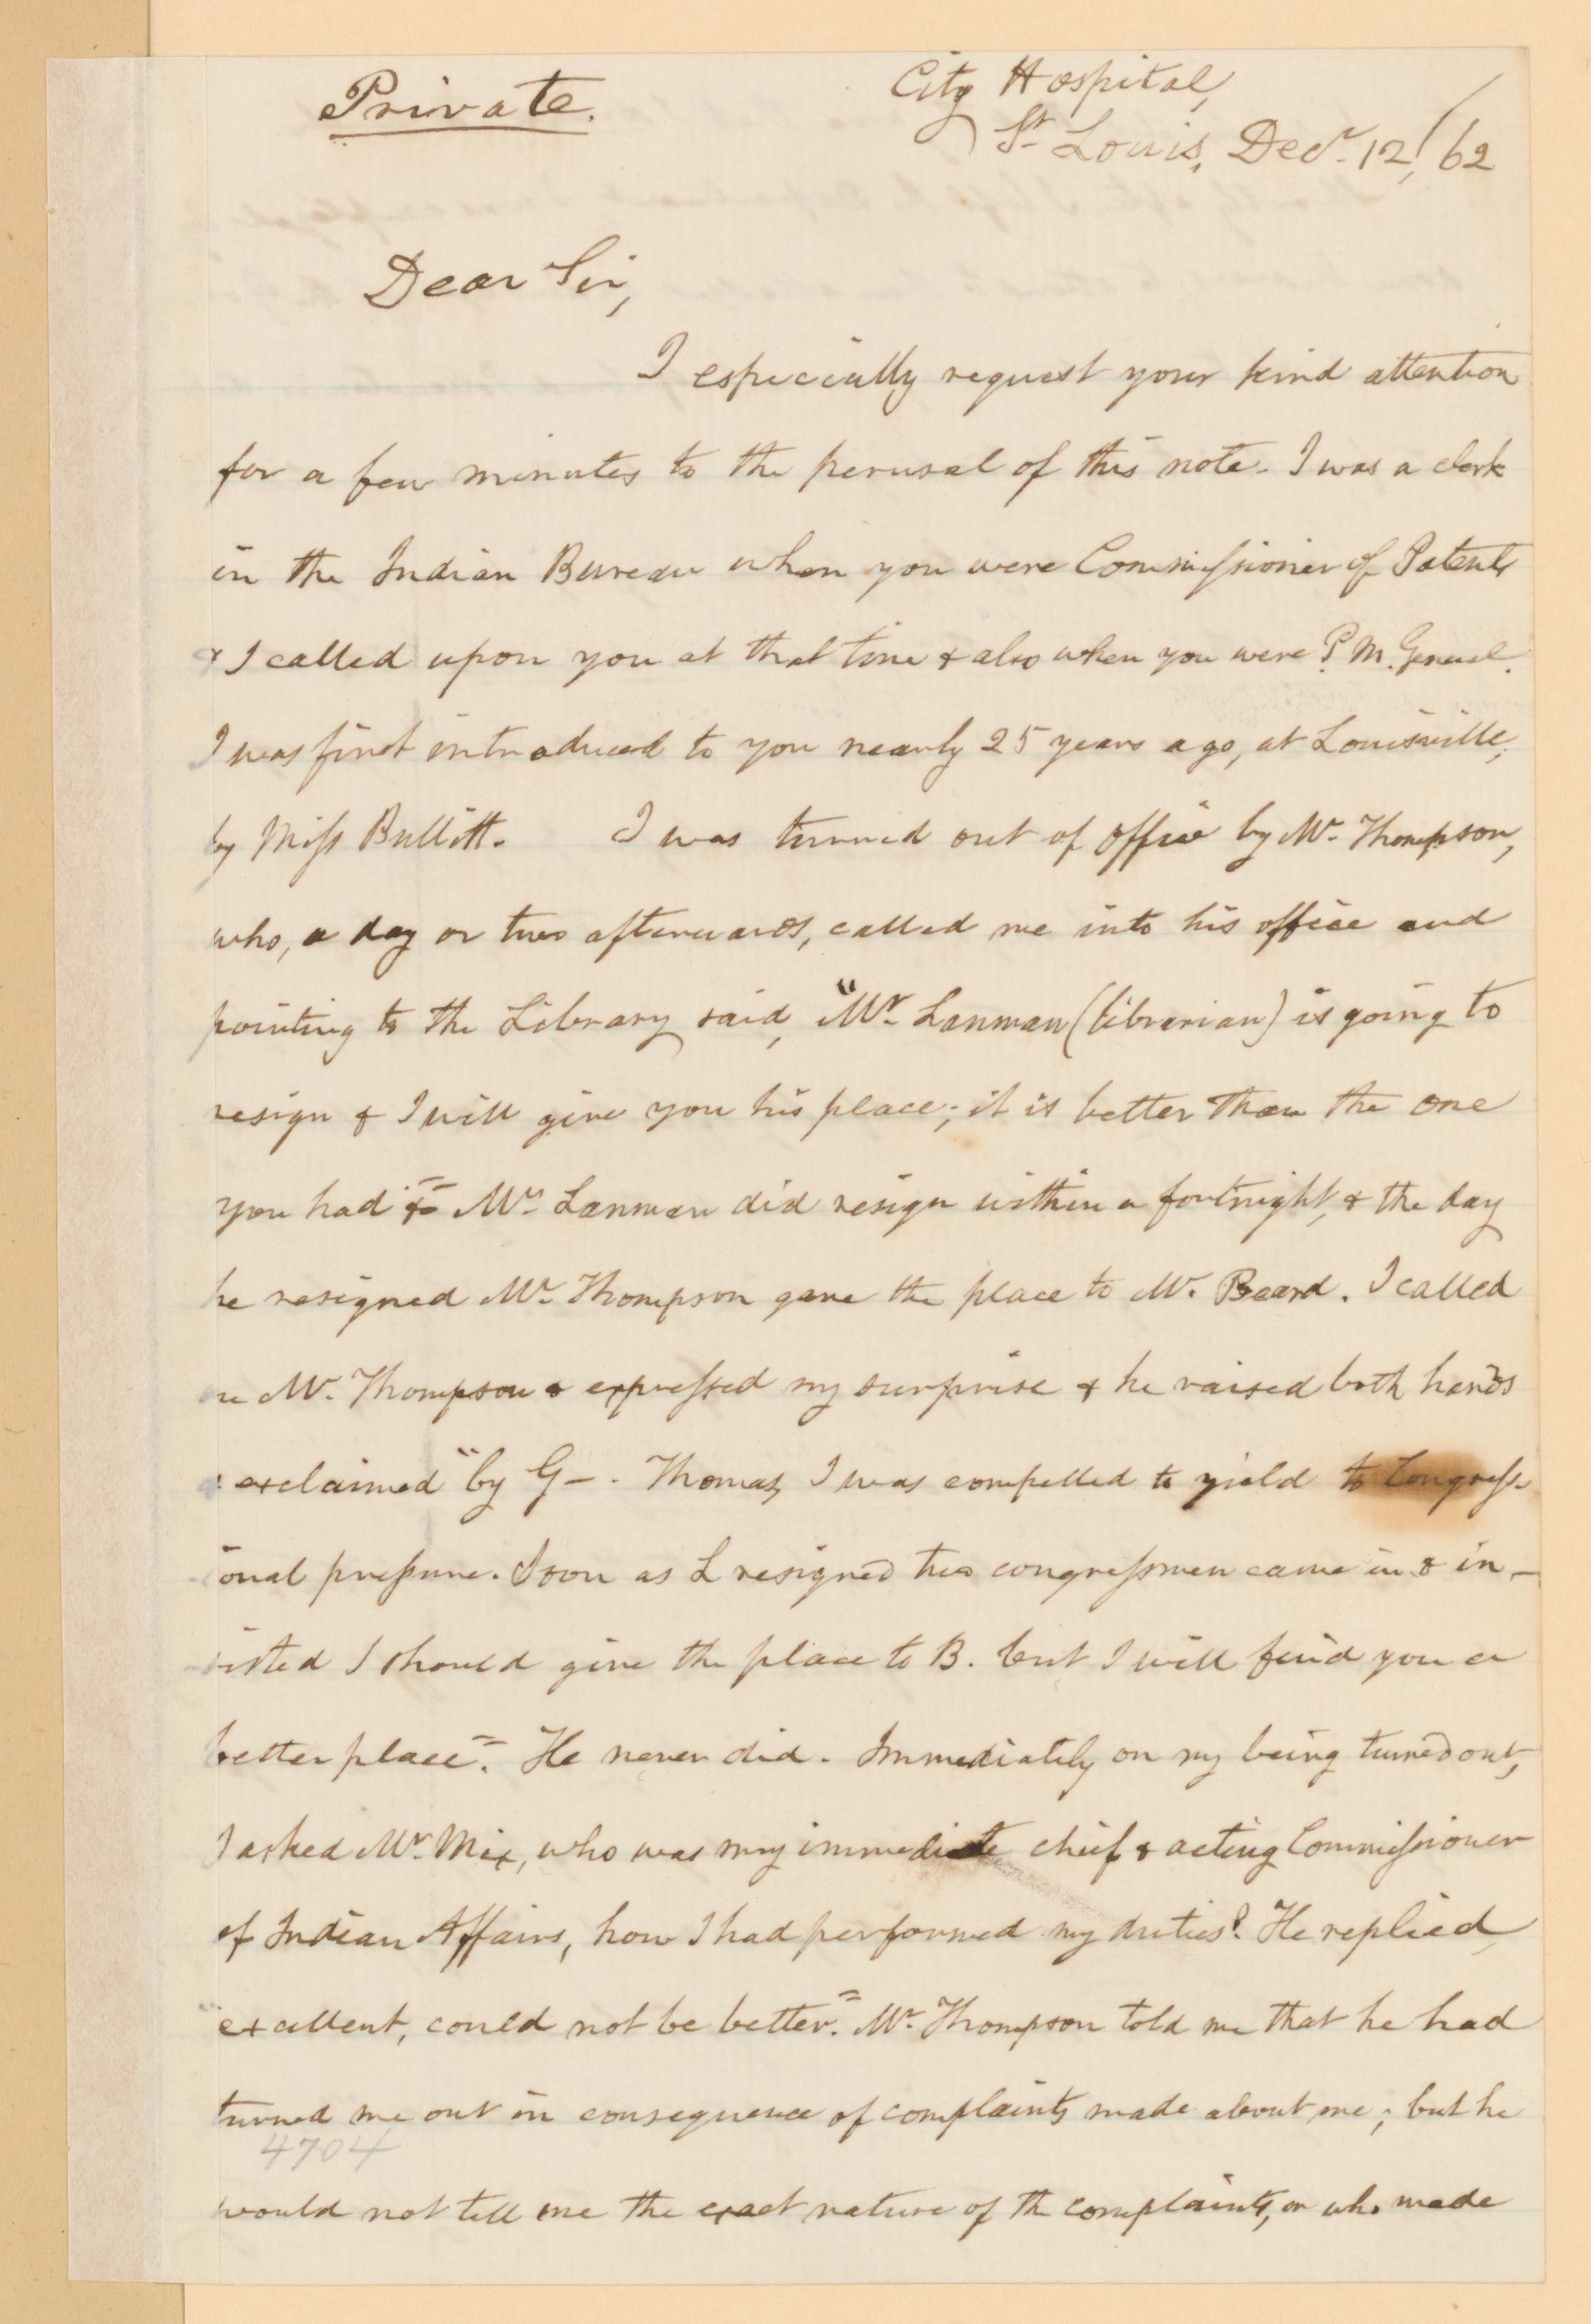 Private.
City Hospital,
St. Louis, Decr. 12,/62
Dear Sir,
I especially request your kind attention
for a few minutes to the perusal of this note. I was a clerk
in the Indian Bureau when you were Commissioner of Patents
& I called upon you at that time & also when you were P. M. General.
I was first introduced to you nearly 25 years ago, at Louisville,
by Miss Bullitt. I was turned out of office by Mr. Thompson,
who, a day or two afterwards, called me into his office and
pointing to the Library said, "Mr. Lanman (librarian) is going to
resign & I will give you his place; it is better than the one
you had". Mr. Lanman did resign within a fortnight, & the day
he resigned Mr. Thompson gave the place to Mr. Beard. I called
on Mr. Thompson & expressed my surprise & he raised both hands
& exclaimed "by G—. Thomas, I was compelled to yield to Congress-
ional pressure. Soon as L resigned two congressmen came in & in-
sisted I should give the place to B. but I will find you a
better place". He never did. Immediately on my being turned out,
I asked Mr. Mix, who was my immediate chief & acting Commissioner
of Indian Affairs, how I had performed my duties? He replied,
"excellent, could not be better." Mr. Thompson told me that he had
turned me out in consequence of complaints made about me; but he
4704
would not tell me the exact nature of th complaints, or who made